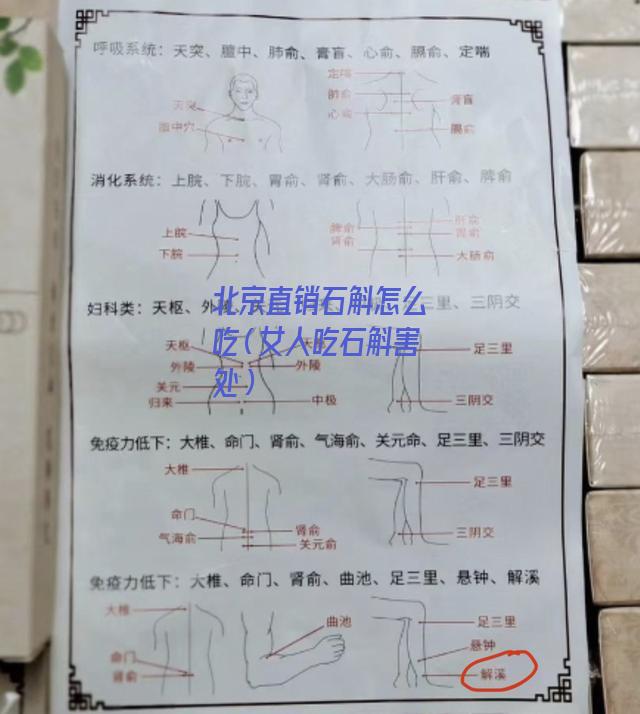 呼吸系统：天突、膻中、肺俞、膏肓、心俞、膈俞、定喘
定喘
肺俞
膏肓
天突
心俞
膻中穴
膈俞
消化系统：上脘、下脘、胃俞、肾俞、大肠俞、肝俞、脾俞
肝俞
上脘
脾俞
胃俞
肾俞
下脘
大肠俞
北京直销石斛怎么
吃(女人吃石斛害
处)
妇科类：天枢、外陵、三里、三阴交
天枢
足三里
外陵
外陵
关元
归来
中极
三阴交
免疫力低下：大椎、命门、肾俞、气海俞、关元命、足三里、三阴交
大椎
足三里
命门
肾俞
气海俞
关元俞
三阴交
免疫力低下：大椎、命门、肾俞、曲池、足三里、悬钟、解溪
大椎
曲池
足三里
悬钟
命门
肾俞
解溪